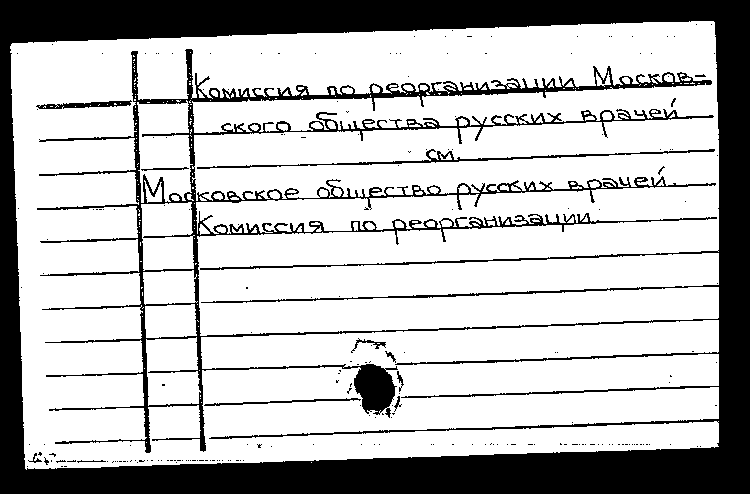 Комиссия по реорганизации Москов-
ского общества русских врачей
см.
Московское общество русских врачей.
Комиссия по реорганизации.